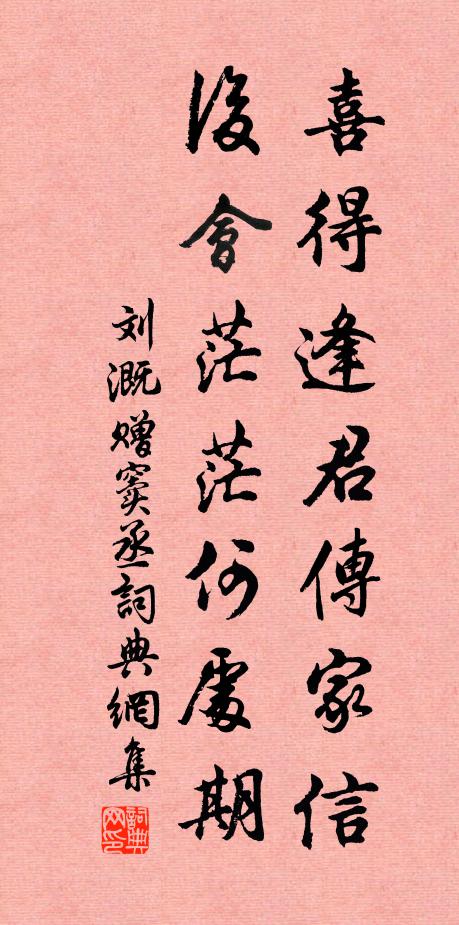 喜得逢君傳家信
後會茫茫何處期
刘溉赠窦丞詞典網集
詞典网印